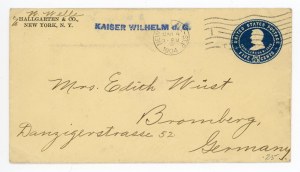 W. Wells
HALLGARTEN & CO.,
NEW YORK, N. Y.
KAISER WILHELM d. G.
UNITED STATES
FIVE CENTS
Mrs. Edith Wüst
Bromberg
Danzigerstrasse 52
Germany